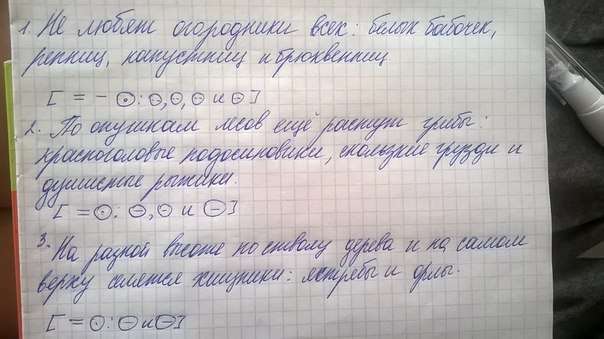 1. Не любят огородники всех: белых бабочек,
репниц, капустниц и брюквенниц
[ = – ⊙: ⊖, ⊖, ⊖ и ⊖ ]
2. По опушкам лесов ещё растут грибы:
красноголовые подосиновики, скользкие грузди и
душистые рыжики.
[ = ⊙: ⊖, ⊖ и ⊖ ]
3. На разной высоте по стволу дерева и на самом
верху селятся хищники: ястребы и орлы.
[ = ⊙: ⊖ и ⊖ ]